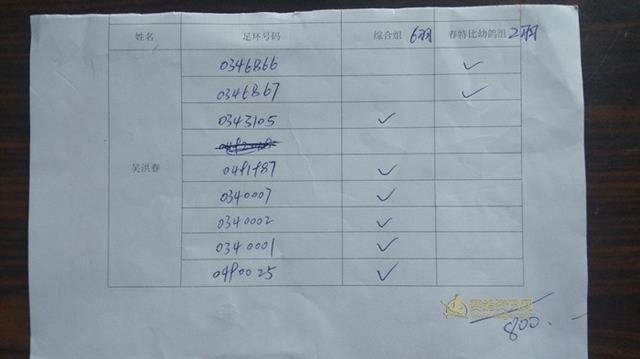 姓名 足环号码 综合组 6羽 春特比幼鸽组 2羽
0346866 ✓
0346867 ✓
0343105 ✓
吴洪春
0340007 ✓
0340002 ✓
0340001 ✓
800.